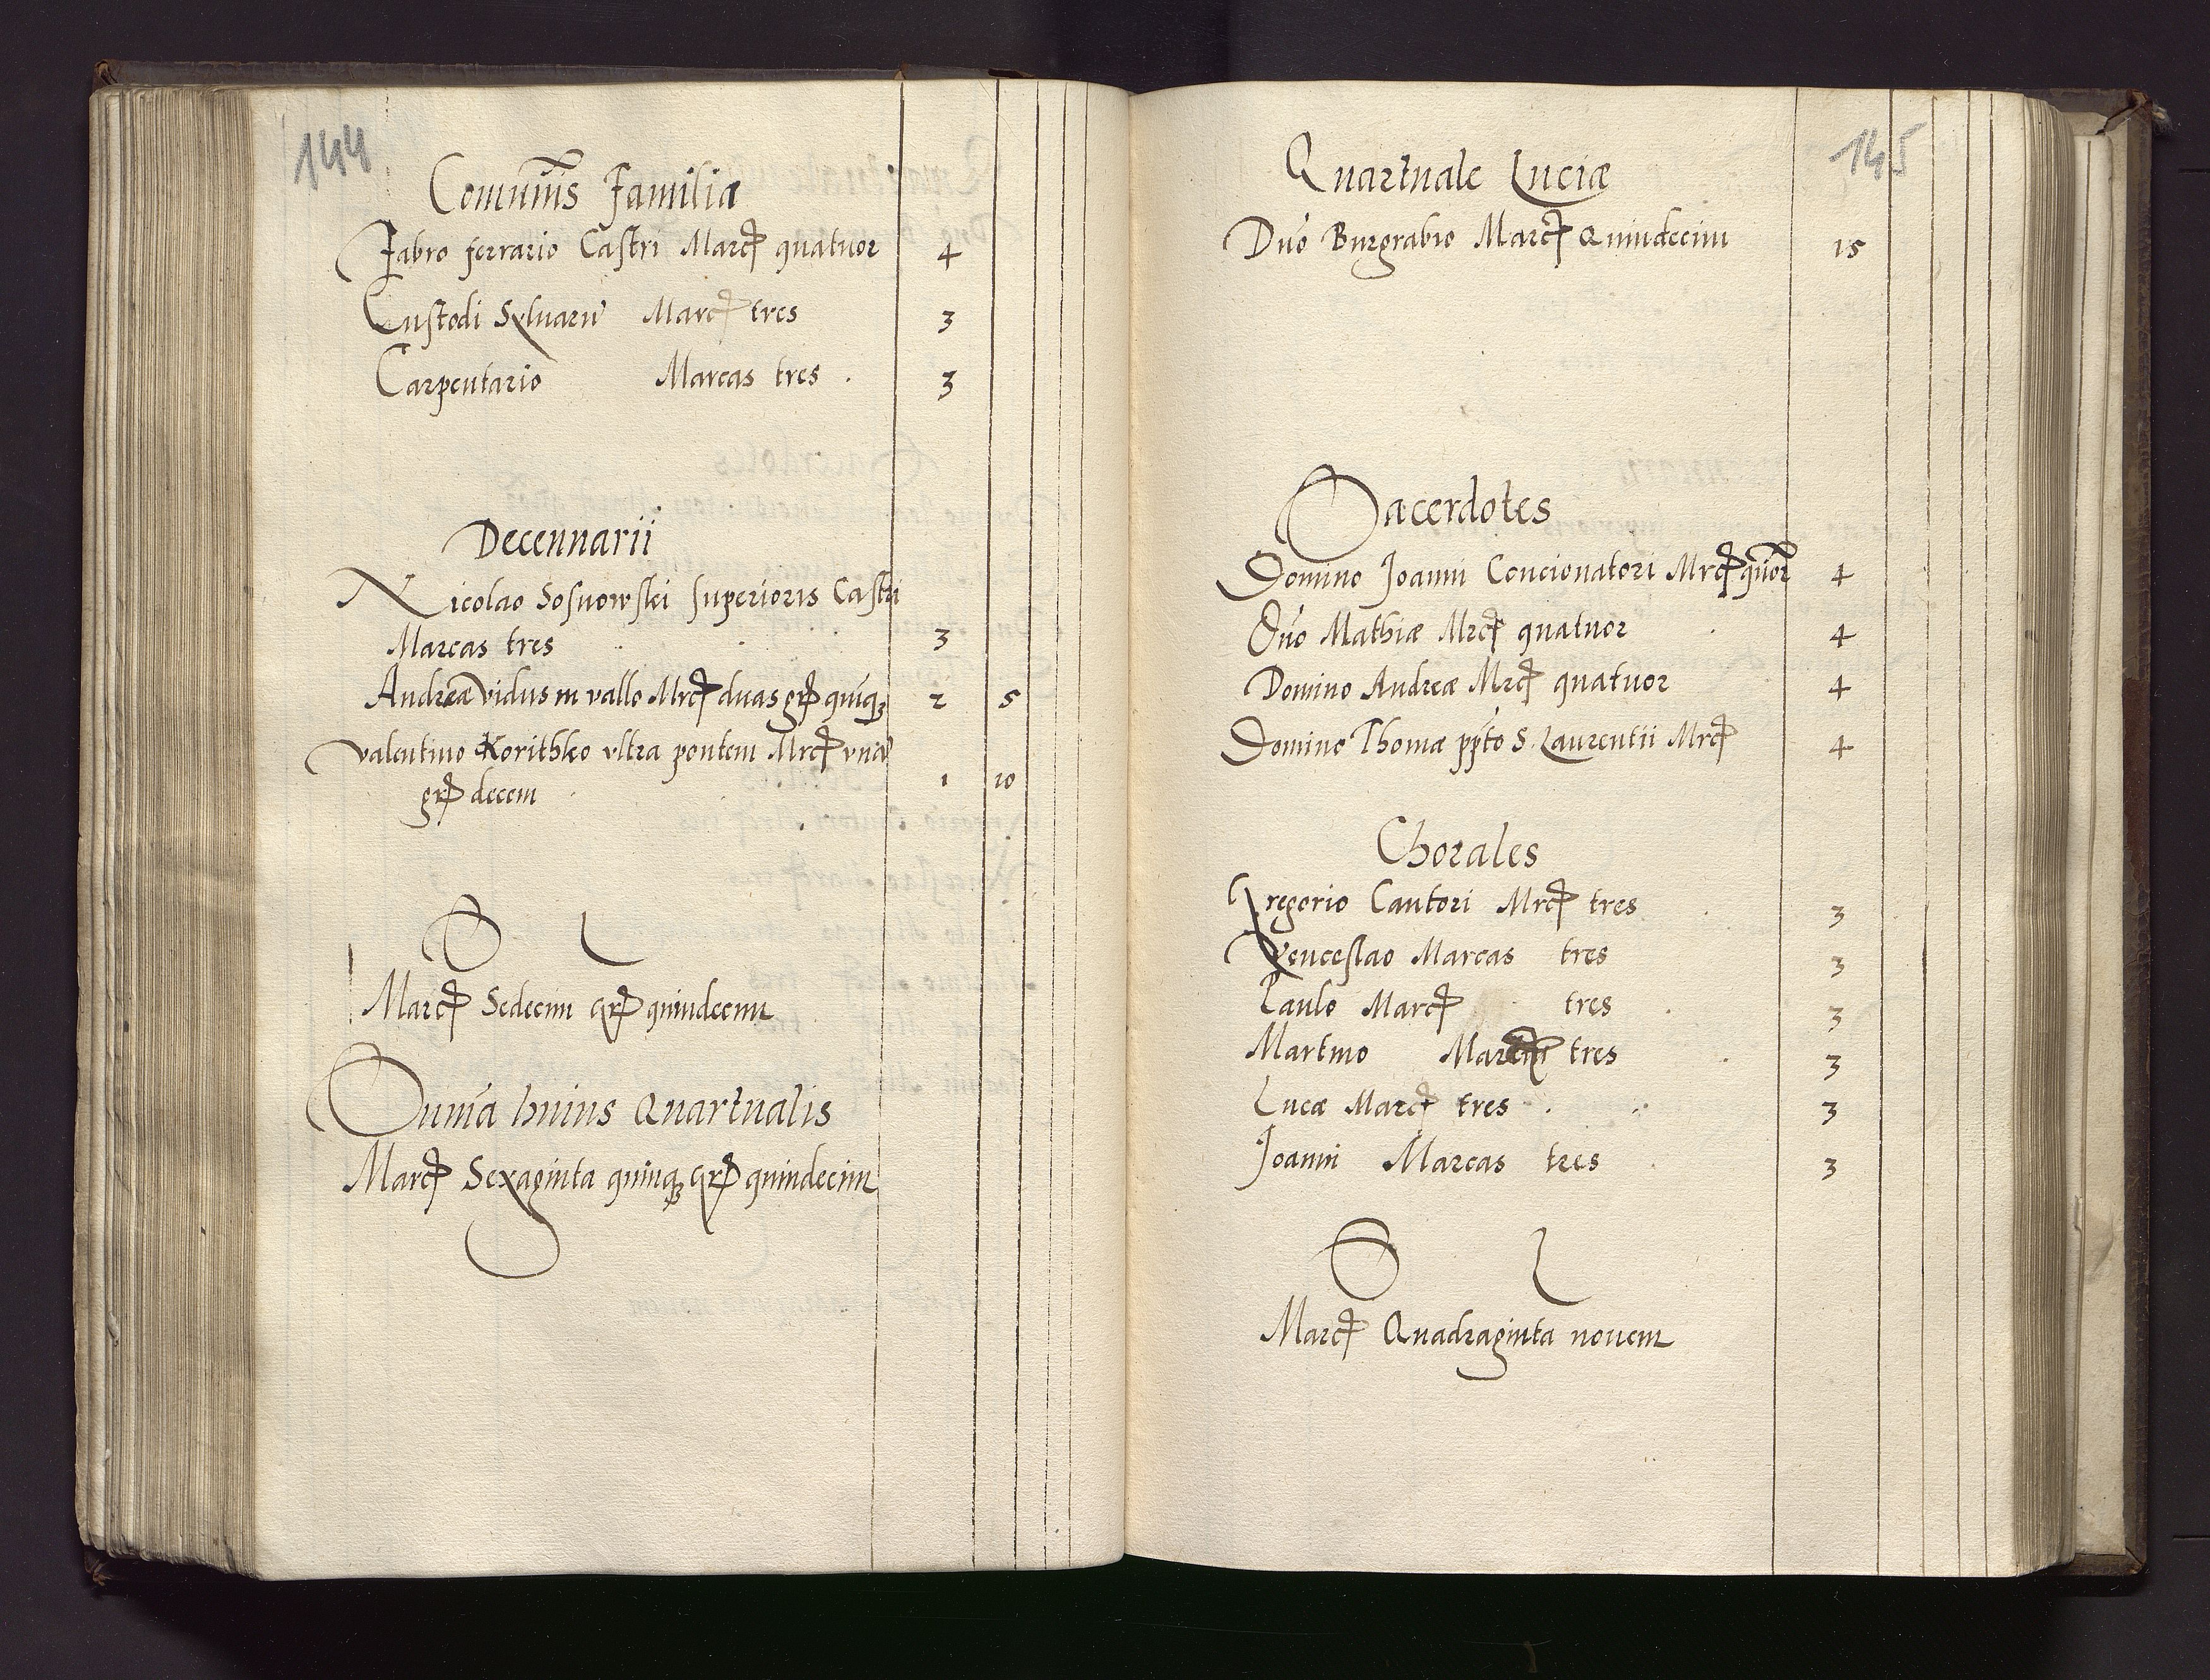 144
Comunis Familia
Fabro ferrario Castri Marcas quatuor 4
Custodi Syluarũ Marcas tres 3
Carpentario Marcas tres . 3
Decennarii
Nicolao Sosnowskei superioris Castri
Marcas tres 3
Andreæ vidus in vallo Mrcas duas grꝭ quĩqꝫ 2 5
Valentino Korithko vltra pontem Mrcꝭ vnã
grꝭ decem 1 10
S L
Marcꝭ Sedecim grꝭ quindecim
Suma huius Quartualis
Marcꝭ Sexaginta quinqꝫ grꝭ quindecim
145
Quartuale Luciæ
Dno Burgrabio Marcꝭ Quindecim 15
Sacerdotes
Domino Joanni Concionatori Mrcꝭ quor 4
Dno Mathiæ Mrcꝭ quatuor 4
Domino Andreæ Mrcꝭ quatuor 4
Domino Thomæ ppto S. Laurentii Mrcꝭ 4
Chorales
Gregorio Cantori Mrcꝭ tres 3
Venceslao Marcas tres 3
Paulo Marcꝭ tres 3
Martino tres 3
Lucæ Marcꝭ tres . 3
Joanni Marcas tres 3
S L
Marcꝭ Quadraginta nouem